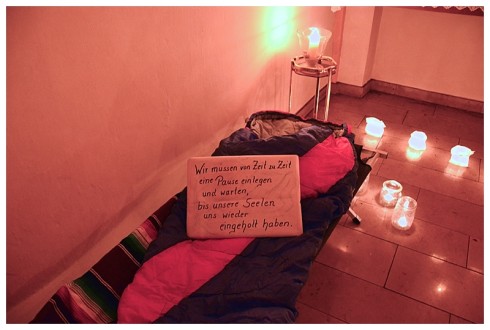 Wir müssen von Zeit zu Zeit
eine Pause einlegen
und warten,
bis unsere Seelen
uns wieder
eingeholt haben.